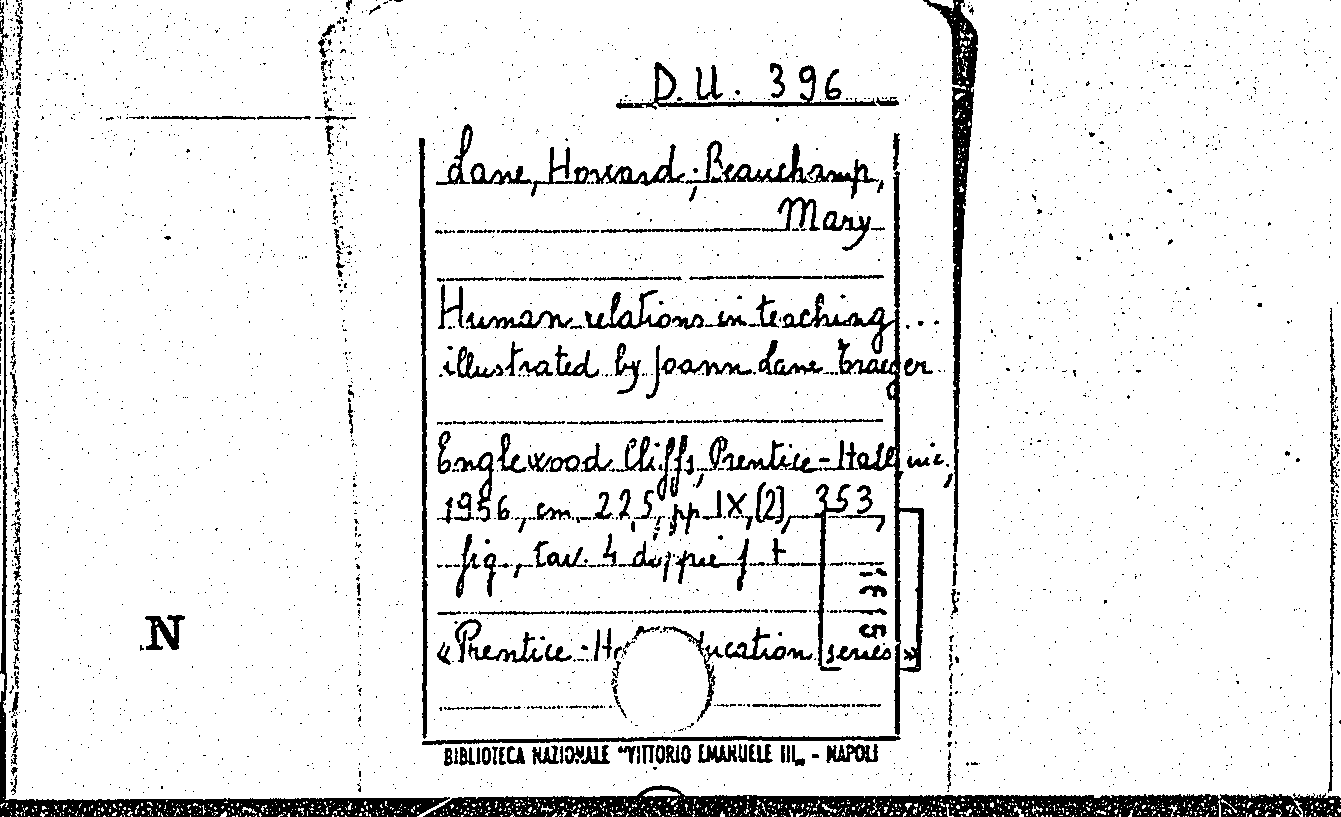 D.U. 396
Lane, Howard; Beauchamp,
Mary
Human relations in teaching...
illustrated by Joann Lane Traeger
Englewood Cliffs, Prentice-Hall, inc.,
1956, cm. 22,5, pp IX, [2], 353,
fig., tav. 4 doppie f. t
«Prentice-H ucation series»
N
BIBLIOTECA NAZIONALE "VITTORIO EMANUELE III„ - NAPOLI